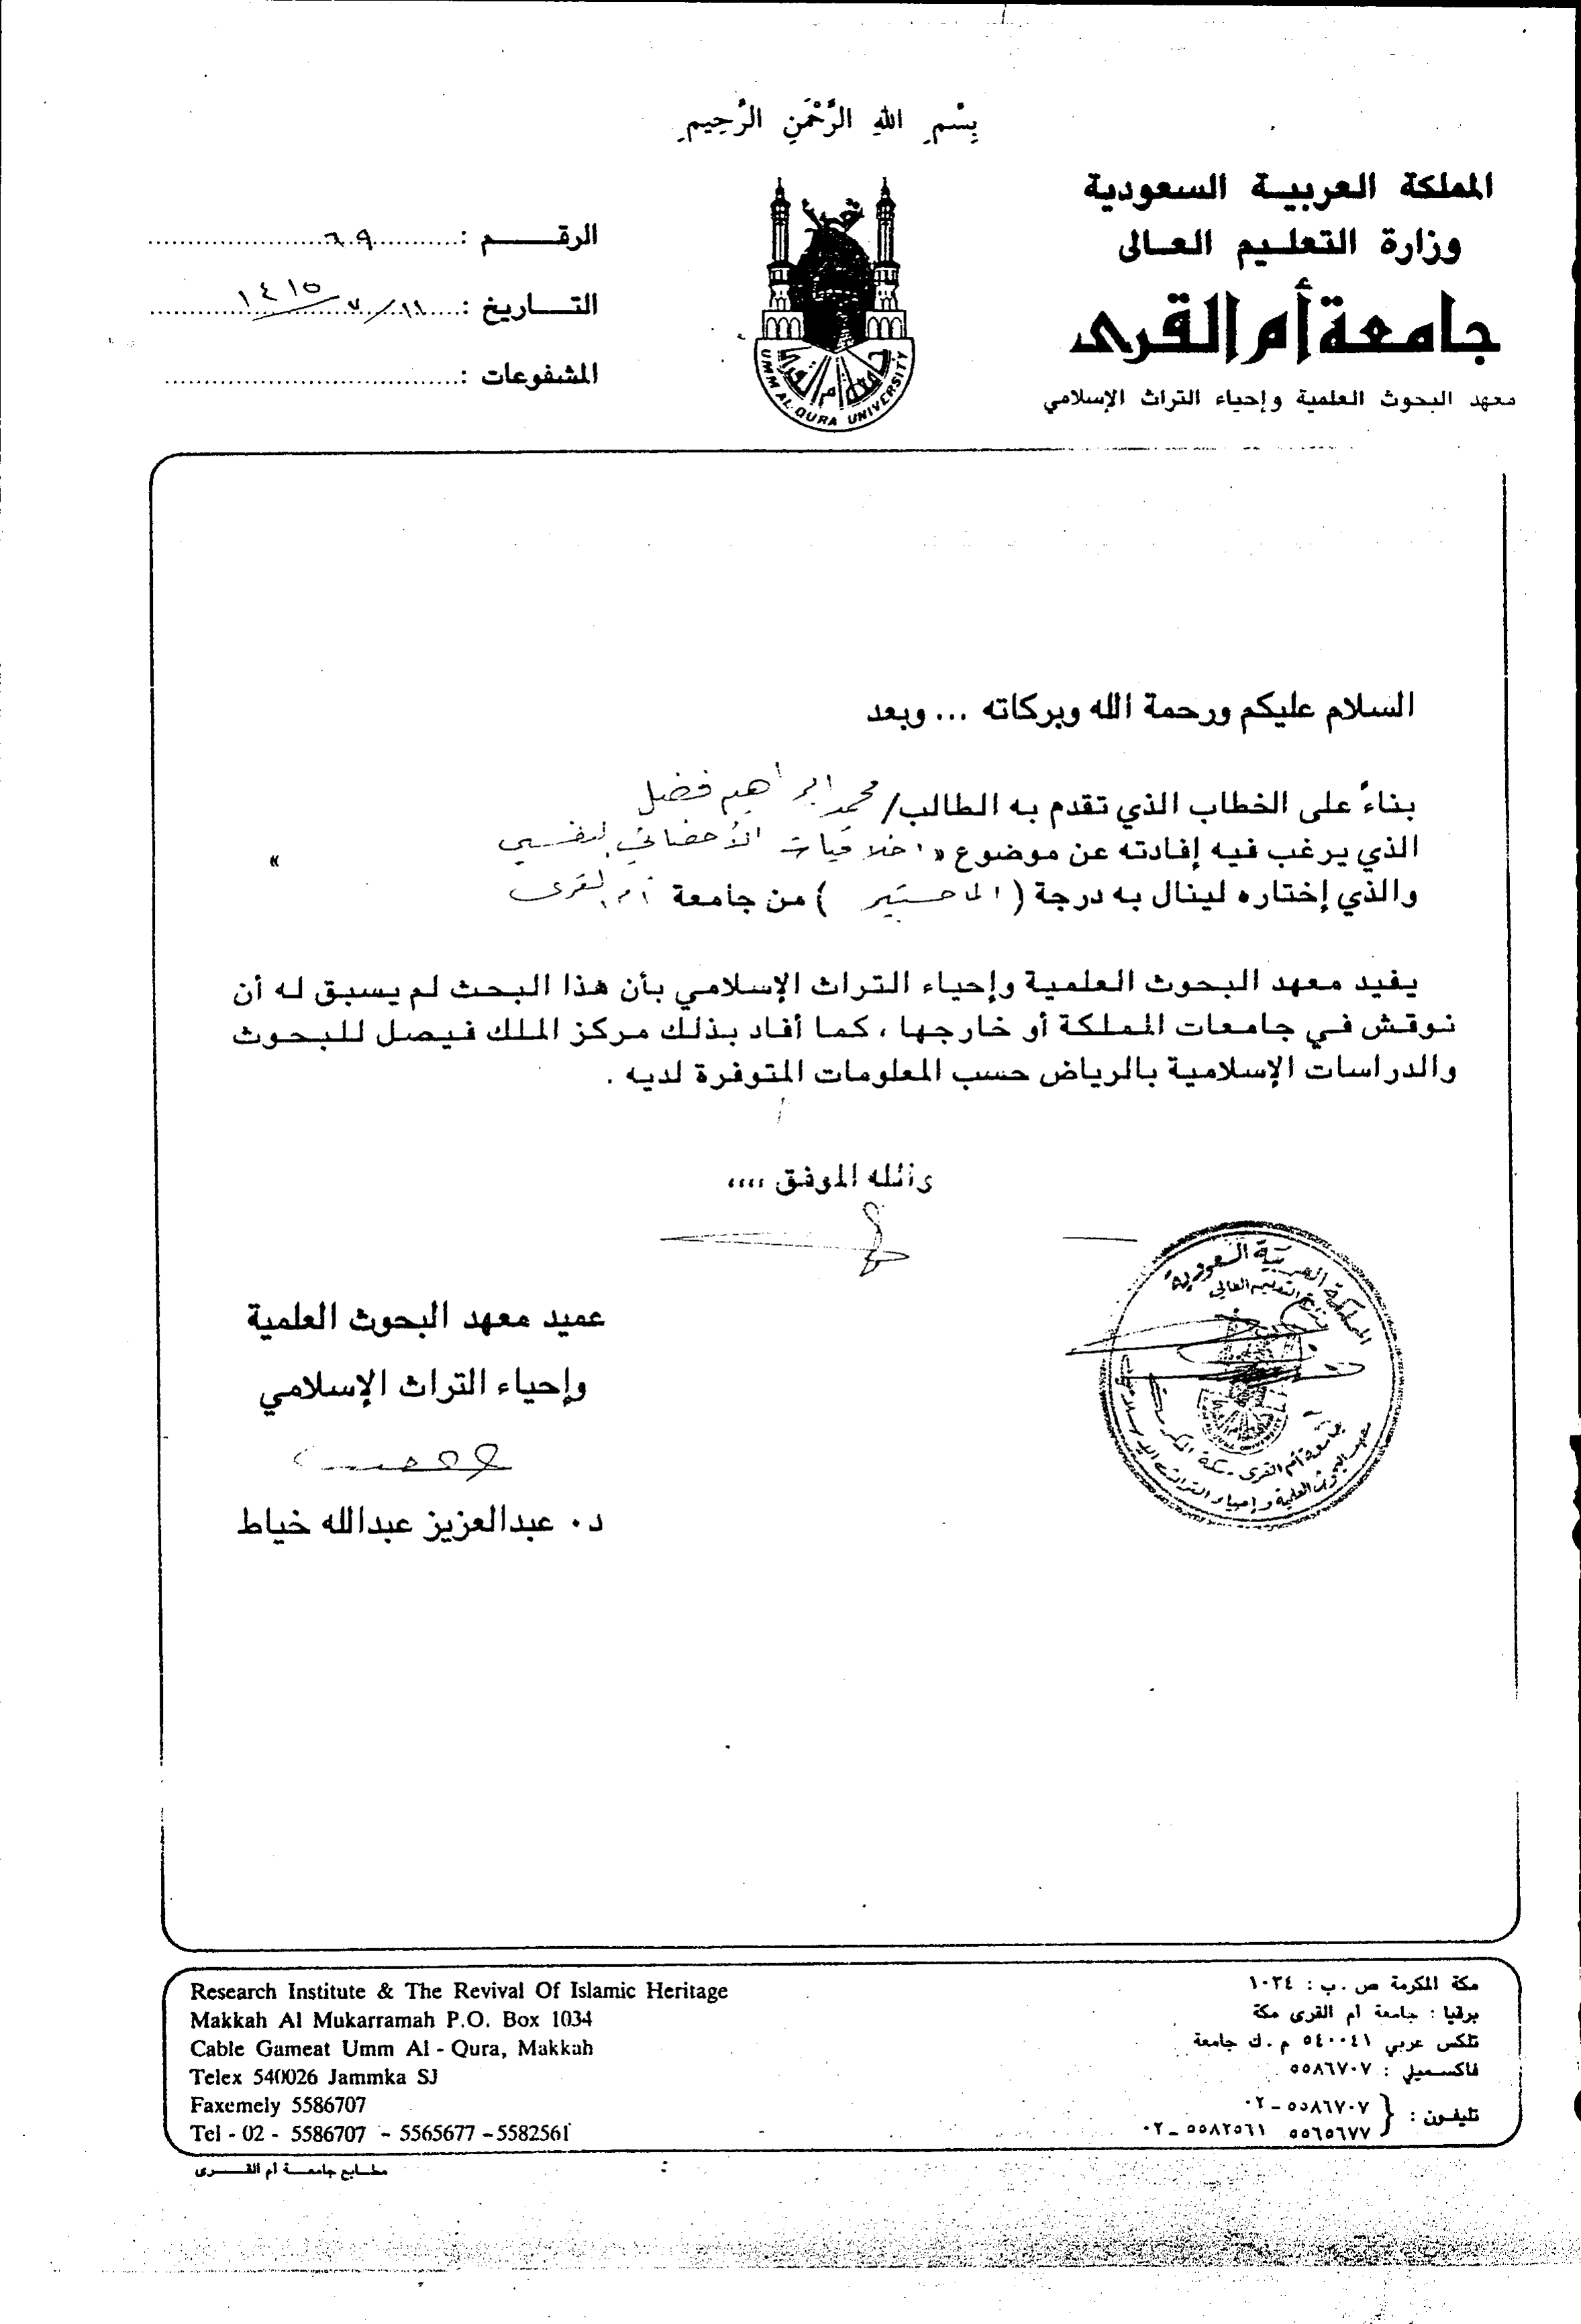 بِسْمِ اللهِ الرَّحْمَنِ الرَّحِيمِ
المملكة العربية السعودية
وزارة التعليم العالى
جامعة أم القرى
معهد البحوث العلمية وإحياء التراث الإسلامي
UMM AL-QURA UNIVERSITY
الرقم : ٦٩
التاريخ : ١١/٧/١٤١٥
المشفوعات :
السلام عليكم ورحمة الله وبركاته ... وبعد
بناءً على الخطاب الذي تقدم به الطالب/ محمد ابراهيم فضل
الذي يرغب فيه إفادته عن موضوع « اخلاقيات الأخصائي النفسي »
والذي إختاره لينال به درجة ( الماجستير ) من جامعة أم القرى
يفيد معهد البحوث العلمية وإحياء التراث الإسلامي بأن هذا البحث لم يسبق له أن
نوقش في جامعات المملكة أو خارجها ، كما أفاد بذلك مركز الملك فيصل للبحوث
والدراسات الإسلامية بالرياض حسب المعلومات المتوفرة لديه .
والله الموفق ،،،،
المملكة العربية السعودية
وزارة التعليم العالي
جامعة أم القرى - مكة المكرمة
معهد البحوث العلمية وإحياء التراث الإسلامي
عميد معهد البحوث العلمية
وإحياء التراث الإسلامي
د. عبدالعزيز عبدالله خياط
Research Institute & The Revival Of Islamic Heritage
Makkah Al Mukarramah P.O. Box 1034
Cable Gameat Umm Al - Qura, Makkah
Telex 540026 Jammka SJ
Faxemely 5586707
Tel - 02 - 5586707 - 5565677 - 5582561
مكة المكرمة ص . ب : ١٠٣٤
برقيا : جامعة أم القرى مكة
تلكس عربي ٥٤٠٠٤١ م . ك جامعة
فاكسميلي : ٥٥٨٦٧٠٧
تليفون : ٥٥٨٦٧٠٧ - ٠٢
٥٥٦٥٦٧٧ ٥٥٨٢٥٦١ - ٠٢
مطابع جامعة أم القرى